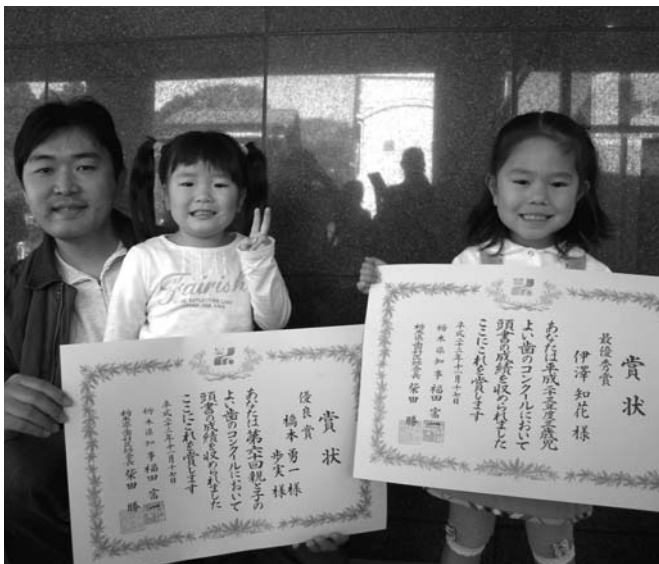 Fairish
賞状
優良賞
橋本 勇一 様
歩実 様
あなたは 親と子の
よい歯のコンクールにおいて
頭書の成績を収められました
ここにこれを賞します
平成二十三年十一月十七日
栃木県知事 福田富
栃木県歯科医師会長 柴田 勝
賞状
最優秀賞
伊澤 知花 様
あなたは平成二十三年度三歳児
よい歯のコンクールにおいて
頭書の成績を収められました
ここにこれを賞します
平成二十三年十一月十七日
栃木県知事 福田富
栃木県歯科医師会長 柴田 勝